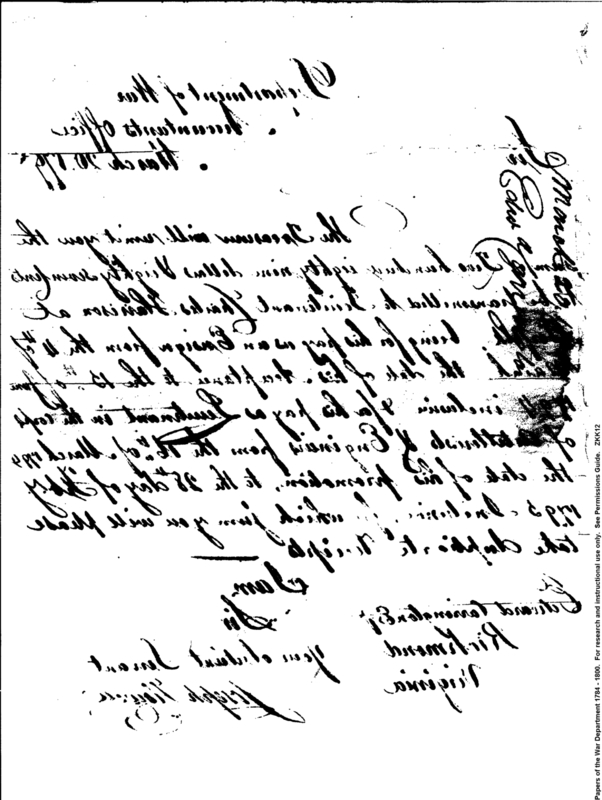 Department of War
Accountants Office
March 20. 1795
Sir
The Treasurer will remit you the
sum of Two hundred eighty nine dollars & eighty seven Cents
to be transmitted to Lieutenant Charles Harrison at
being for his pay as an Ensign from the 4th of
March the date of his Acceptance to the 15th of June
inclusive & for his pay as Lieutenant in the Corps
of Artillerists & Engineers from the 16th of March 1794
the date of his promotion, to the 28th day of Feby
1795 Inclusive, for which sum you will please
take duplicate receipts
I am
Sir
Your Obedient Servant
Joseph Howell
Edward Carrington Esqr
Richmond
Virginia
March 20
Edwd Carrington
Papers of the War Department 1784 - 1800. For research and instructional use only. See Permissions Guide. ZKK12